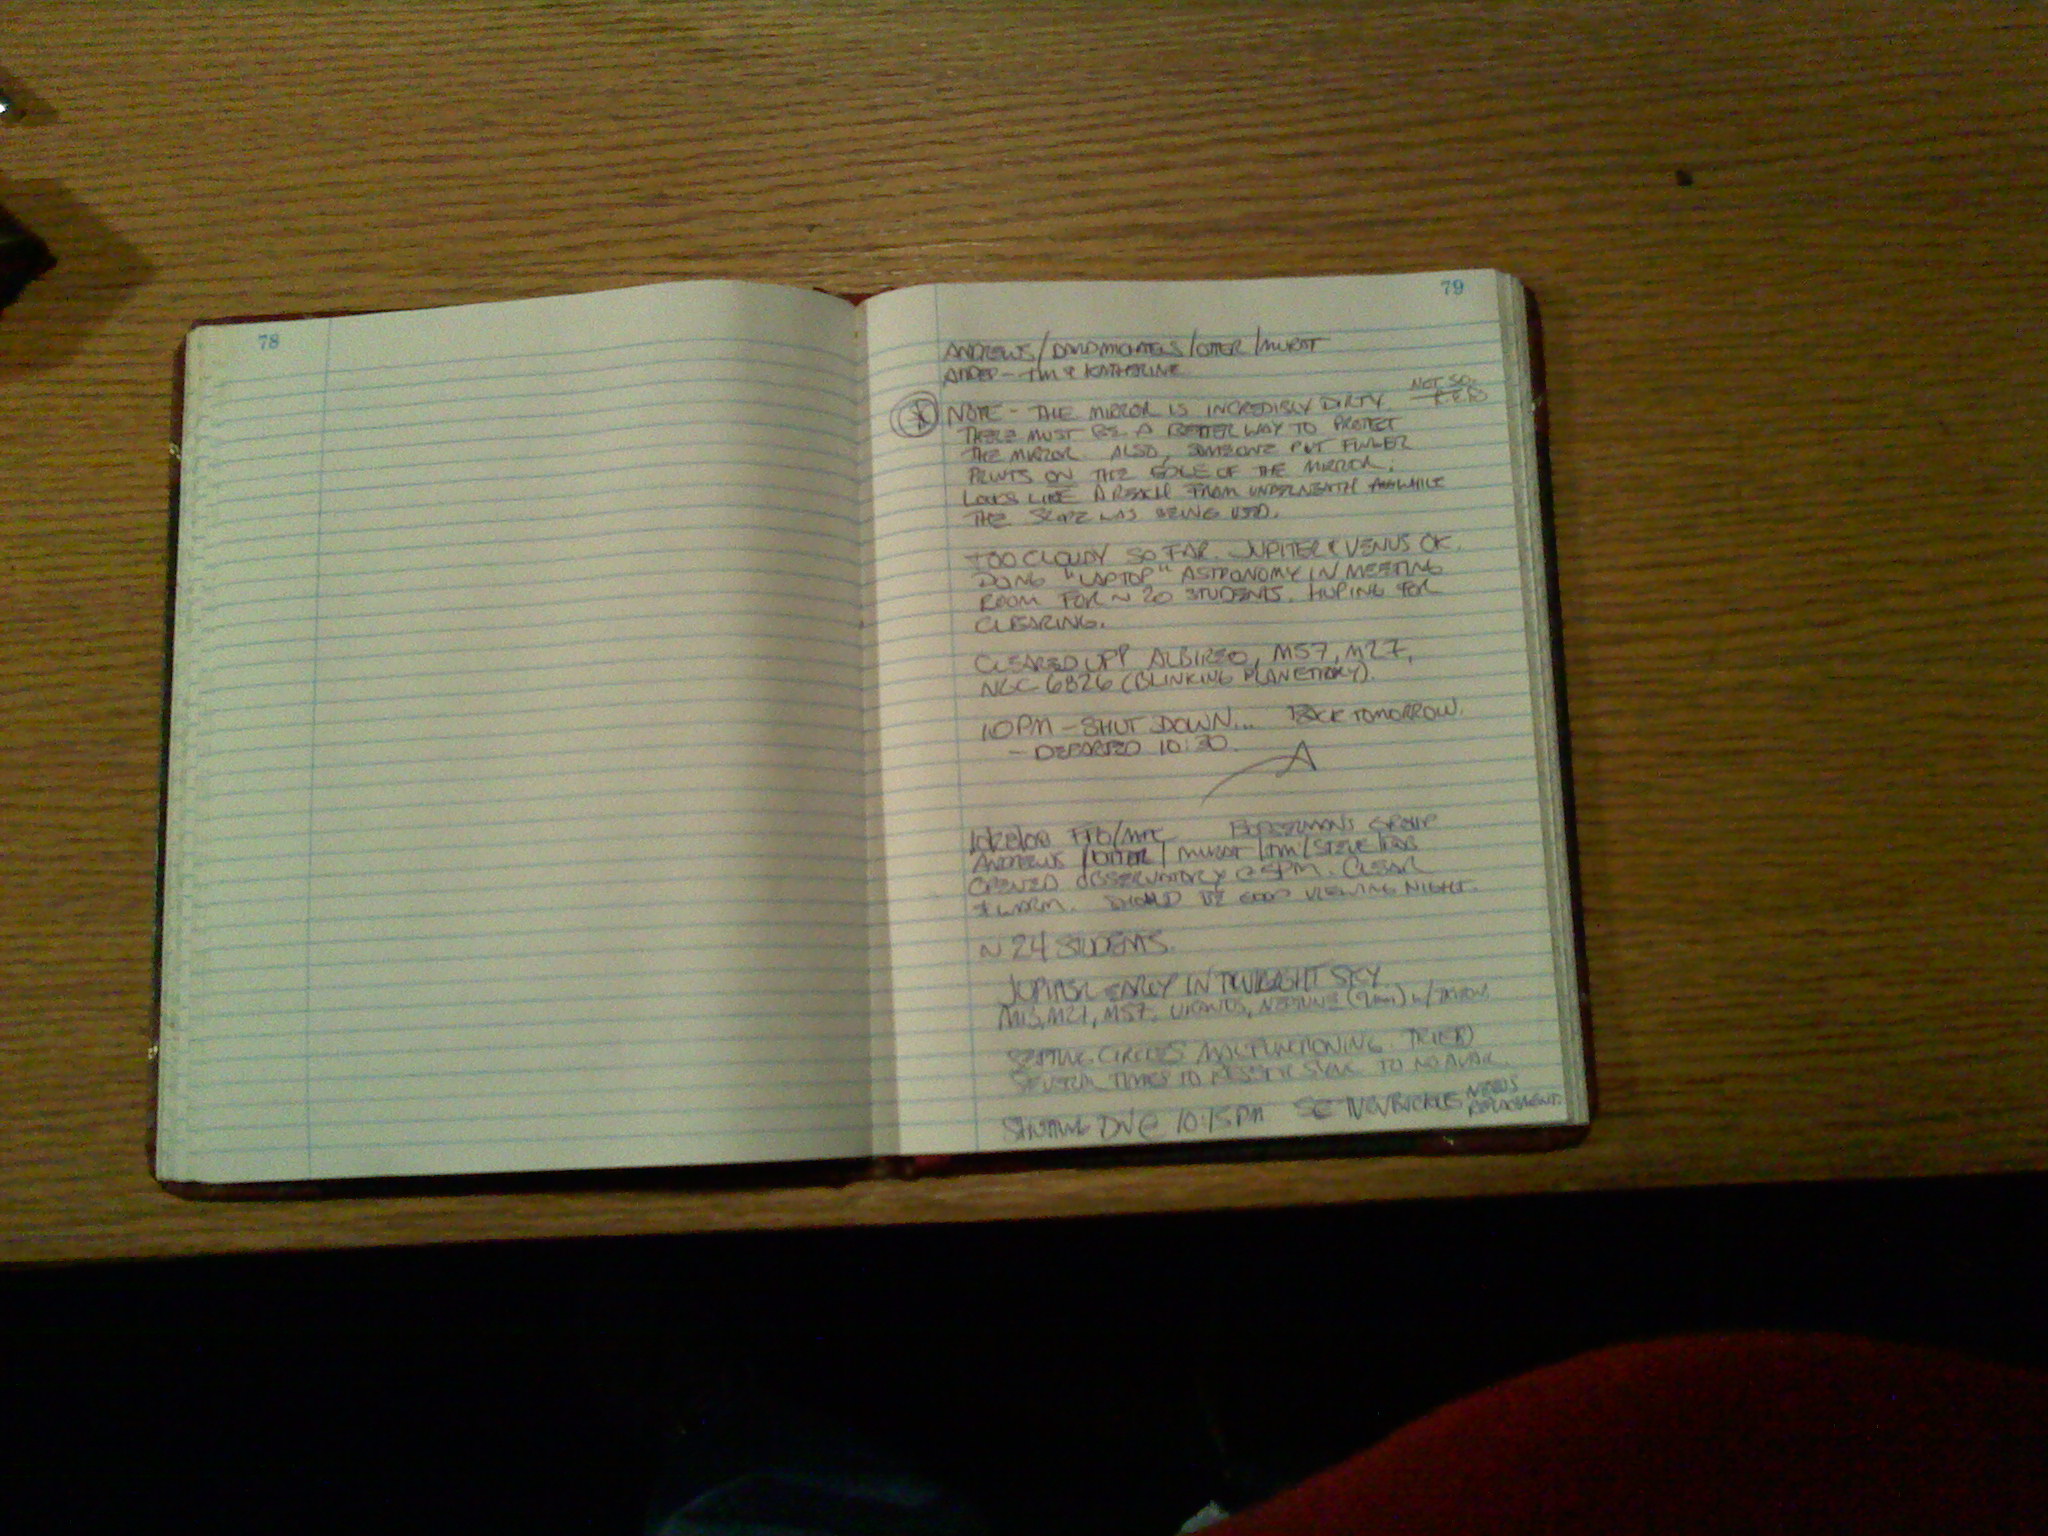 78
79
ANDREWS / / OTTER / MURAT
ADDED - TIM & KATHERINE
NOT SO
NOTE - THE MIRROR IS INCREDIBLY DIRTY
THERE MUST BE A BETTER WAY TO PROTECT
THE MIRROR. ALSO, SOMEONE PUT FINGER
PRINTS ON THE EDGE OF THE MIRROR.
LOOKS LIKE A REACH FROM UNDERNEATH WHILE
THE SCOPE WAS BEING USED.
TOO CLOUDY SO FAR. JUPITER & VENUS OK.
DOING "LAPTOP" ASTRONOMY IN MEETING
ROOM FOR ~ 20 STUDENTS. HOPING FOR
CLEARING.
CLEARED UP? ALBIREO, M57, M27,
NGC 6826 (BLINKING PLANETARY).
10PM - SHUT DOWN... BACK TOMORROW.
- DEPARTED 10:30.
GROUP
ANDREWS / OTTER / MURAT / TIM / STEVE
OPENED OBSERVATORY @ 5PM. CLEAR
& WARM. SHOULD BE GOOD VIEWING NIGHT.
~ 24 STUDENTS.
JUPITER EARLY IN TWILIGHT SKY
M13, M27, M57, URANUS, NEPTUNE W/ TRITON
SETTING CIRCLES MALFUNCTIONING. TRIED
SEVERAL TIMES TO TO NO AVAIL.
SHUTTING DN @ 10:15PM SE TURNBUCKLES NEEDS
REPLACEMENT.